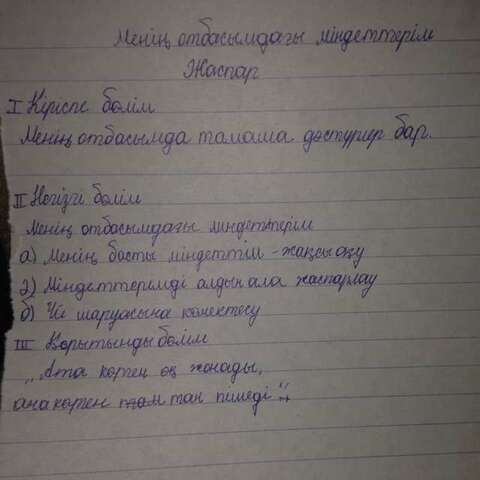 Менің отбасымдағы міндеттерім
Жаспар
I Кіріспе бөлім
Менің отбасымда тамаша дәстүрлер бар.
II Негізгі бөлім
Менің отбасымдағы міндеттерім
а) Менің басты міндеттім - жақсы оқу
ә) Міндеттерімді алдын ала жоспарлау
б) Үй шаруасына көмектесу
III Қорытынды бөлім
"Ата көрген оқ жонады,
ана көрген том тон пішеді".